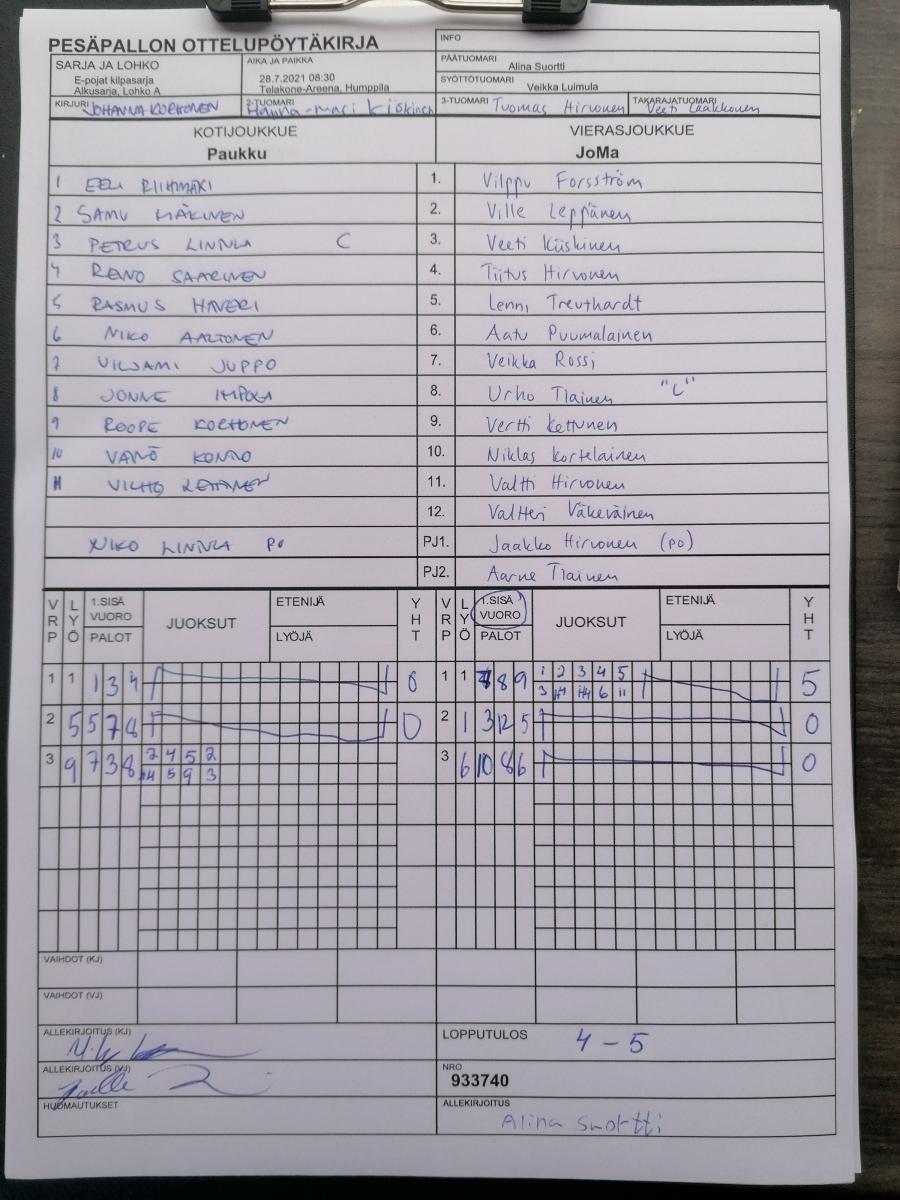 PESÄPALLON OTTELUPÖYTÄKIRJA
INFO
SARJA JA LOHKO
E-pojat kilpasarja
Alkusarja, Lohko A
AIKA JA PAIKKA
28.7.2021 08:30
Telakone-Areena, Humppila
PÄÄTUOMARI
Alina Suortti
SYÖTTÖTUOMARI
Veikka Luimula
KIRJURI JOHANNA KORHONEN
2-TUOMARI Hanna-Mari
3-TUOMARI Tuomas Hirvonen
TAKARAJATUOMARI Veeti Laakkonen
KOTIJOUKKUE
Paukku
VIERASJOUKKUE
JoMa
1 EELI RIIHIMÄKI 1. Vilppu Forsström
2 SAMU MÄKINEN 2. Ville Leppänen
3 PETRUS LINNLA C 3. Veeti Kiiskinen
4 REINO SAARINEN 4. Tiitus Hirvonen
5 RASMUS HAVERI 5. Lenni Treuthardt
6 NIKO AALTONEN 6. Aatu Puumalainen
7 VILJAMI JUPPO 7. Veikka Rossi
8 JONNE IMPOLA 8. Urho Tiainen "C"
9 ROOPE KORHONEN 9. Vertti Kettunen
10 VÄINÖ KONNO 10. Niklas Kortelainen
11 VILHO 11. Valtti Hirvonen
12. Valtteri Väkeväinen
NIKO LINNLA PJ PJ1. Jaakko Hirvonen (PJ)
PJ2. Aarne Tiainen
VRP LYÖ 1.SISÄ VUORO PALOT JUOKSUT ETENIJÄ LYÖJÄ YHT VRP LYÖ 1.SISÄ VUORO PALOT JUOKSUT ETENIJÄ LYÖJÄ YHT
1 1 1 3 4 0 1 1 8 9 1 2 3 4 5 5
3 6 11
2 5 5 7 8 0 2 1 3 12 5 0
3 9 7 3 8 2 4 5 2 3 6 10 8 6 0
4 5 9 3
VAIHDOT (KJ)
VAIHDOT (VJ)
ALLEKIRJOITUS (KJ)
LOPPUTULOS 4 - 5
ALLEKIRJOITUS (VJ)
NRO
933740
HUOMAUTUKSET
ALLEKIRJOITUS
Alina Suortti